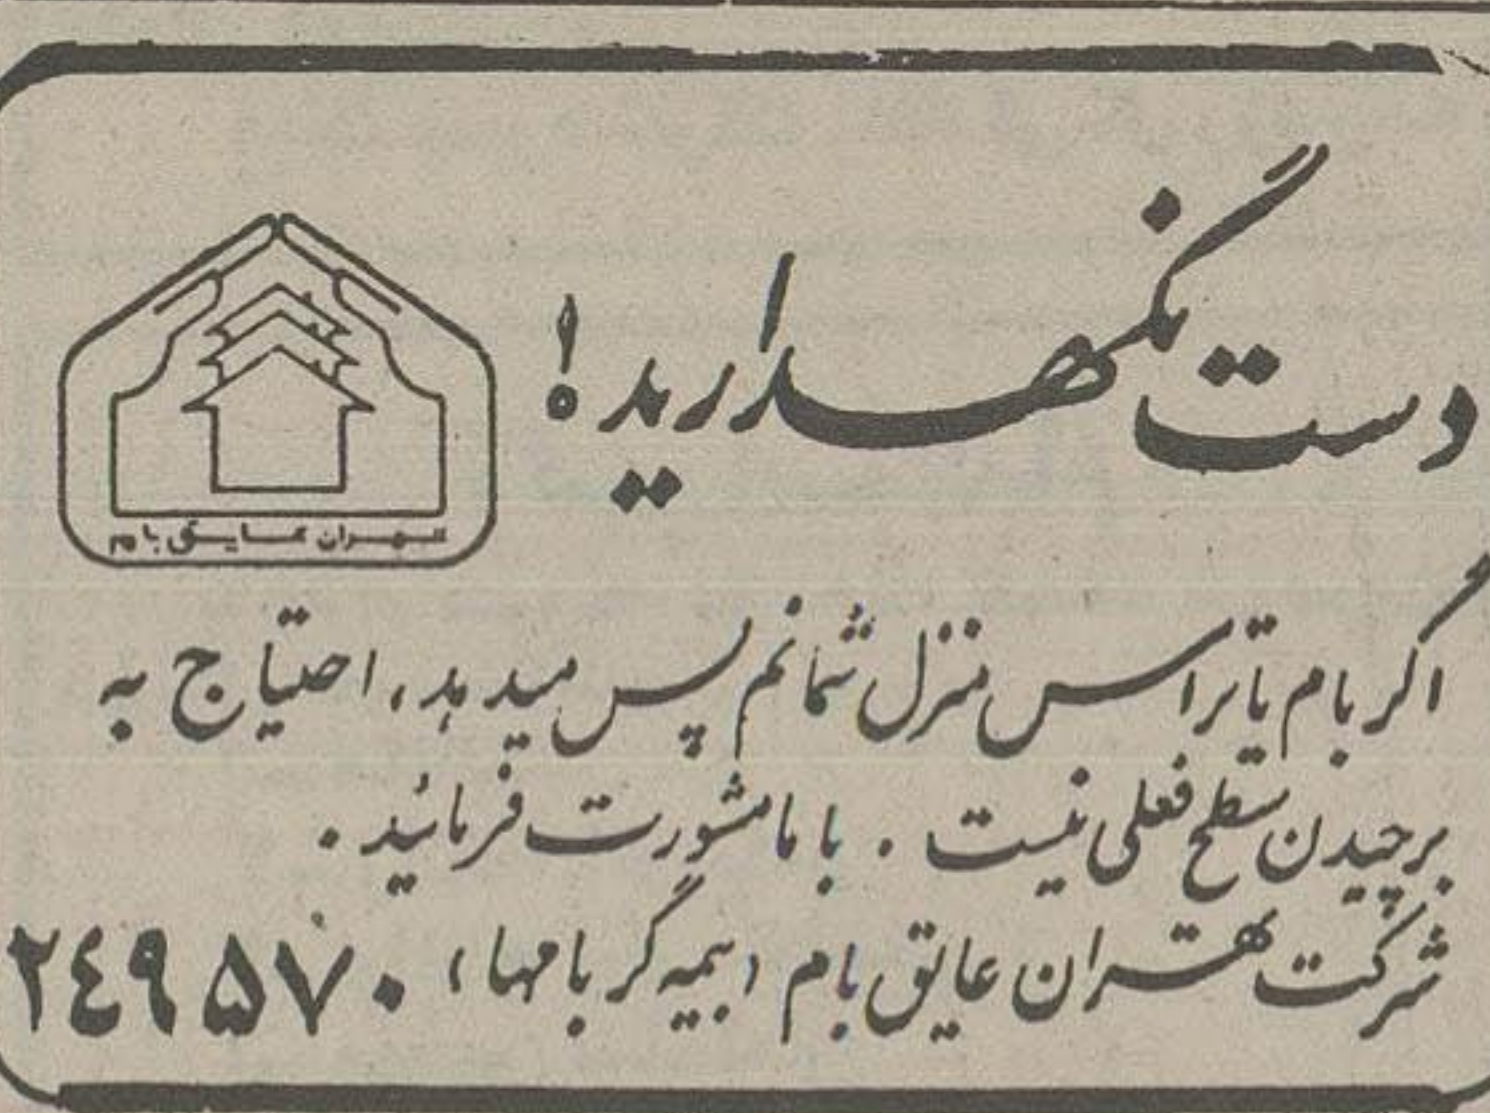 دست نگهدارید!
تهران عایق بام
اگر بام یا تراس منزل شما نم پس میدهد، احتیاج به
برچیدن سطح فعلی نیست. با ما مشورت فرمائید.
شرکت تهران عایق بام «بیمه گر بامها» ۲۴۹۵۷۰